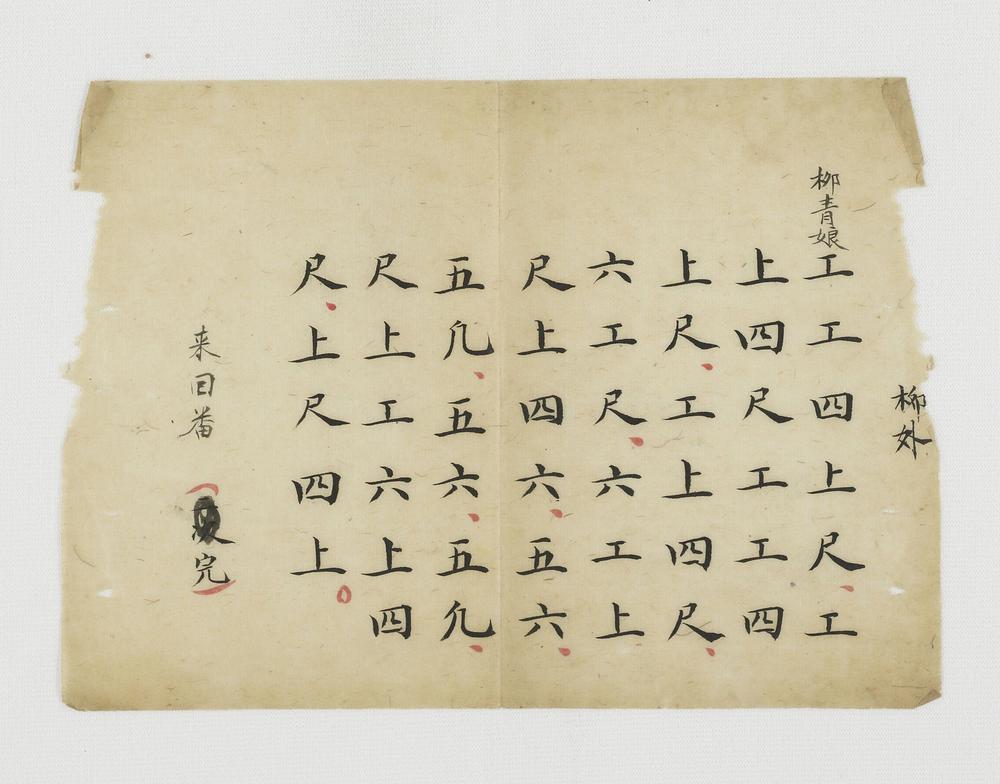 柳外
柳青娘
工工四上尺工
上四尺工工四
上尺工上四尺
六工尺六工上
尺上四六五六
五凢五六五凢
尺上工六上四
尺上尺四上
来回番
完